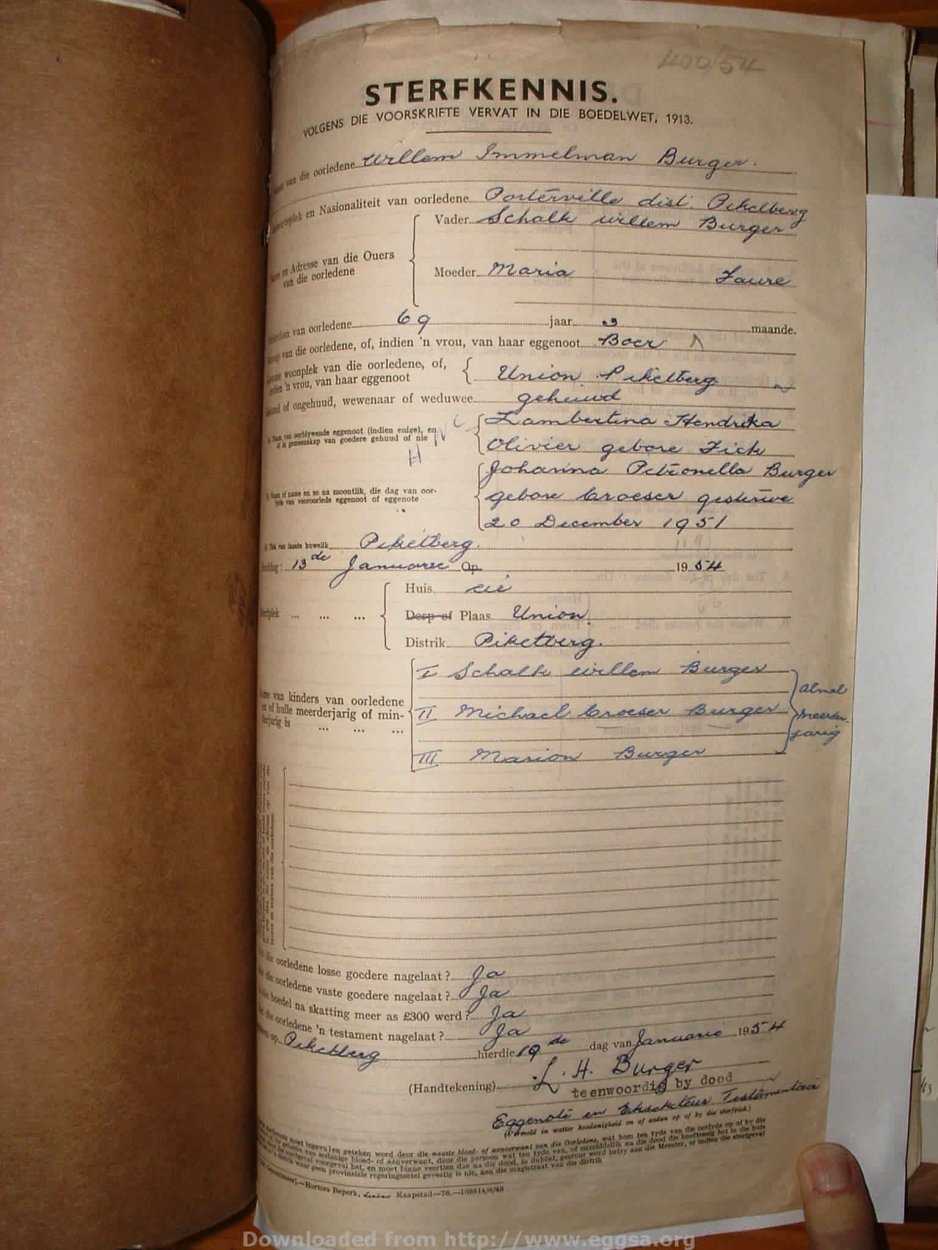 400/54
STERFKENNIS.
VOLGENS DIE VOORSKRIFTE VERVAT IN DIE BOEDELWET, 1913.
van die oorledene Willem Immelman Burger.
en Nasionaliteit van oorledene Porterville dist. Piketberg
Vader Schalk Willem Burger
en Adresse van die Ouers
van die oorledene
Moeder Maria Faure
van oorledene 69 jaar 3 maande.
van die oorledene, of, indien 'n vrou, van haar eggenoot Boer
woonplek van die oorledene, of,
indien 'n vrou, van haar eggenoot
Union Piketberg
of ongehuud, wewenaar of weduwee gehuwd
Naam van oorblywende eggenoot (indien enige), en
of in gemeenskap van goedere gehuud of nie
Lambertina Hendrika
Olivier gebore Fick
of name en so na moontlik, die dag van oor-
lyde van vooroorlede eggenoot of eggenote
Johanna Petronella Burger
gebore Croeser gesterwe
20 December 1951
van laaste huwelik Piketberg.
13de Januarie Op 1954
Huis
Dorp of Plaas Union.
Distrik Piketberg.
van kinders van oorledene
en of hulle meerderjarig of min-
derjarig is
I Schalk Willem Burger
II Michael Croeser Burger
III Marion Burger
almal
meerder-
jarig
oorledene losse goedere nagelaat? Ja
die oorledene vaste goedere nagelaat? Ja
boedel na skatting meer as £300 werd? Ja
die oorledene 'n testament nagelaat? Ja
op Piketberg hierdie 19 de dag van Januarie 1954
(Handtekening) L. H. Burger
teenwoordig by dood
Eggenote en Eksekuteur Testamentair
(Vermeld in watter hoedanigheid en of aldan op of by die sterfbed.)
Hortors Beperk, Kaapstad
Downloaded from http://www.eggsa.org